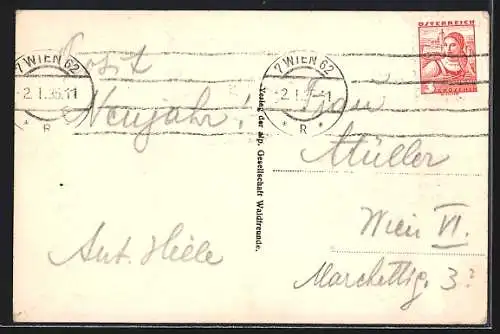 ÖSTERREICH
3 GROSCHEN
7 WIEN 62
2.I.36.11
* R *
7 WIEN 62
* R *
Prost
Neujahr!
Ant. Hiele
Verlag der alp. Gesellschaft Waldfreunde.
Frau
Müller
Wien VI.
Marchettig. 3